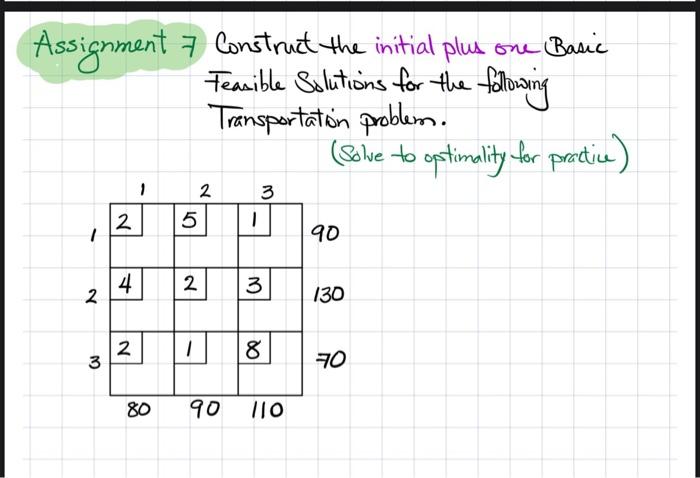 Assignment 7 Construct the initial plus one Basic
Feasible Solutions for the following
Transportation problem.
(Solve to optimality for practice)
1 2 3
1 2 5 1 90
2 4 2 3 130
3 2 1 8 70
80 90 110